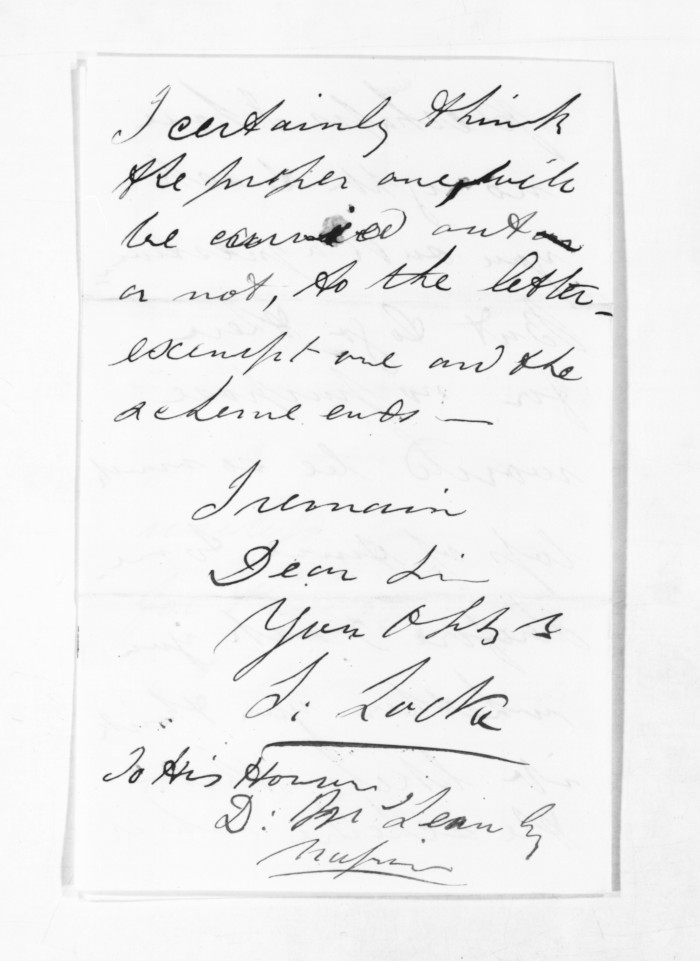 I certainly think
the proper one, will
be carried out
or not, to the letter -
exempt one and the
scheme ends —
I remain
Dear Sir
Your Obt S
S: Locke
To His Honour
D: McLean Esq
Napier